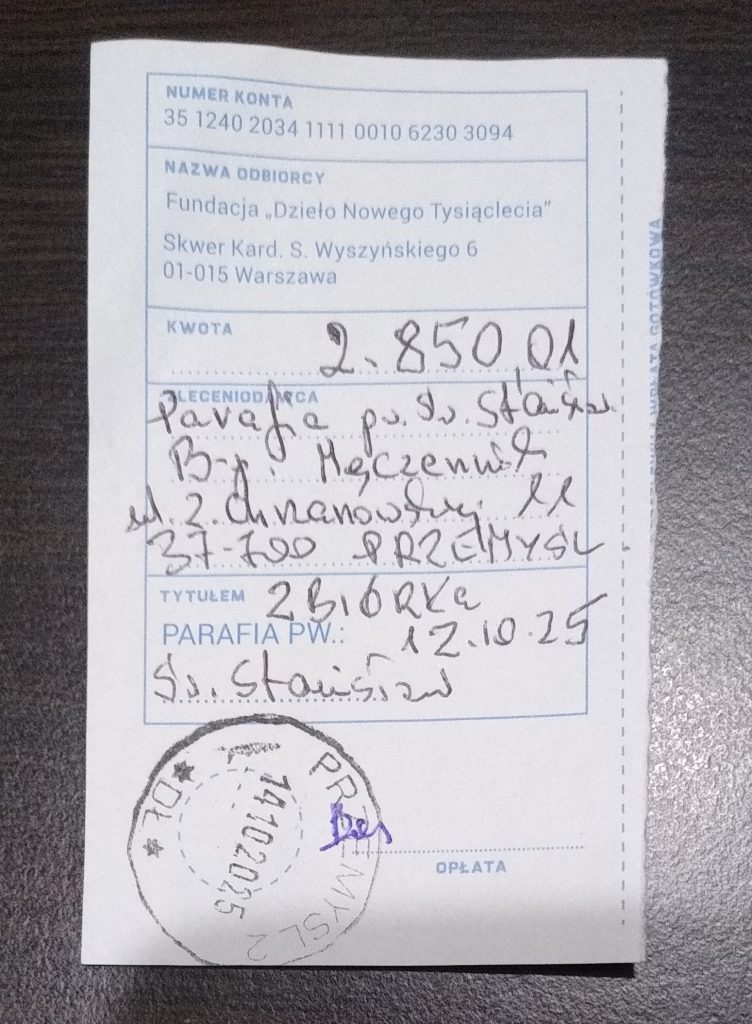 NUMER KONTA
35 1240 2034 1111 0010 6230 3094
NAZWA ODBIORCY
Fundacja „Dzieło Nowego Tysiąclecia”
Skwer Kard. S. Wyszyńskiego 6
01-015 Warszawa
KWOTA 2.850,01
ZLECENIODAWCA
Parafia pw. Św. Stanisław
B-p. Męczennik
ul. Z. Chrzanowskiej 11
37-700 PRZEMYŚL
TYTUŁEM ZBIÓRKA
PARAFIA PW.: 12.10.25
Św. Stanisław
PRZEMYŚL 2
14102025
* DŁ *
OPŁATA